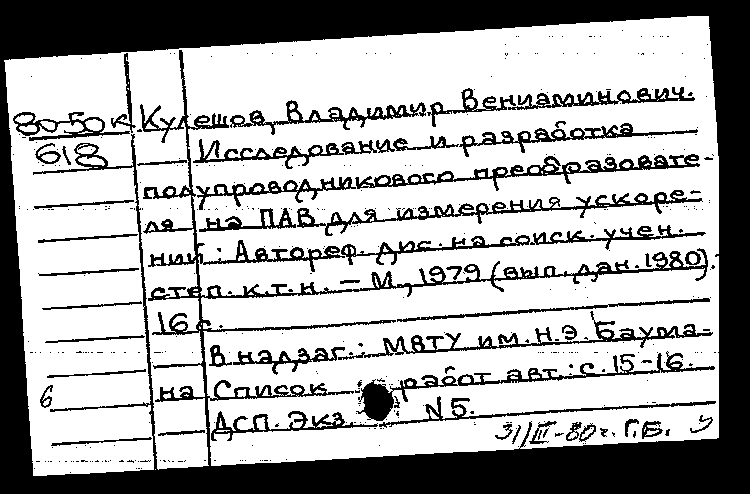 80-50к Кулешов, Владимир Вениаминович.
618 Исследование и разработка
полупроводникового преобразовате-
ля на ПАВ для измерения ускоре-
ний : Автореф. дис. на соиск. учен.
степ. к.т.н. – М., 1979 (вып. дан. 1980).
16 с.
В надзаг.: МВТУ им. Н.Э. Баума-
6 на Список работ авт.: с. 15-16.
ДСП. Экз. N 5.
31/III-80 г. Г.Б.